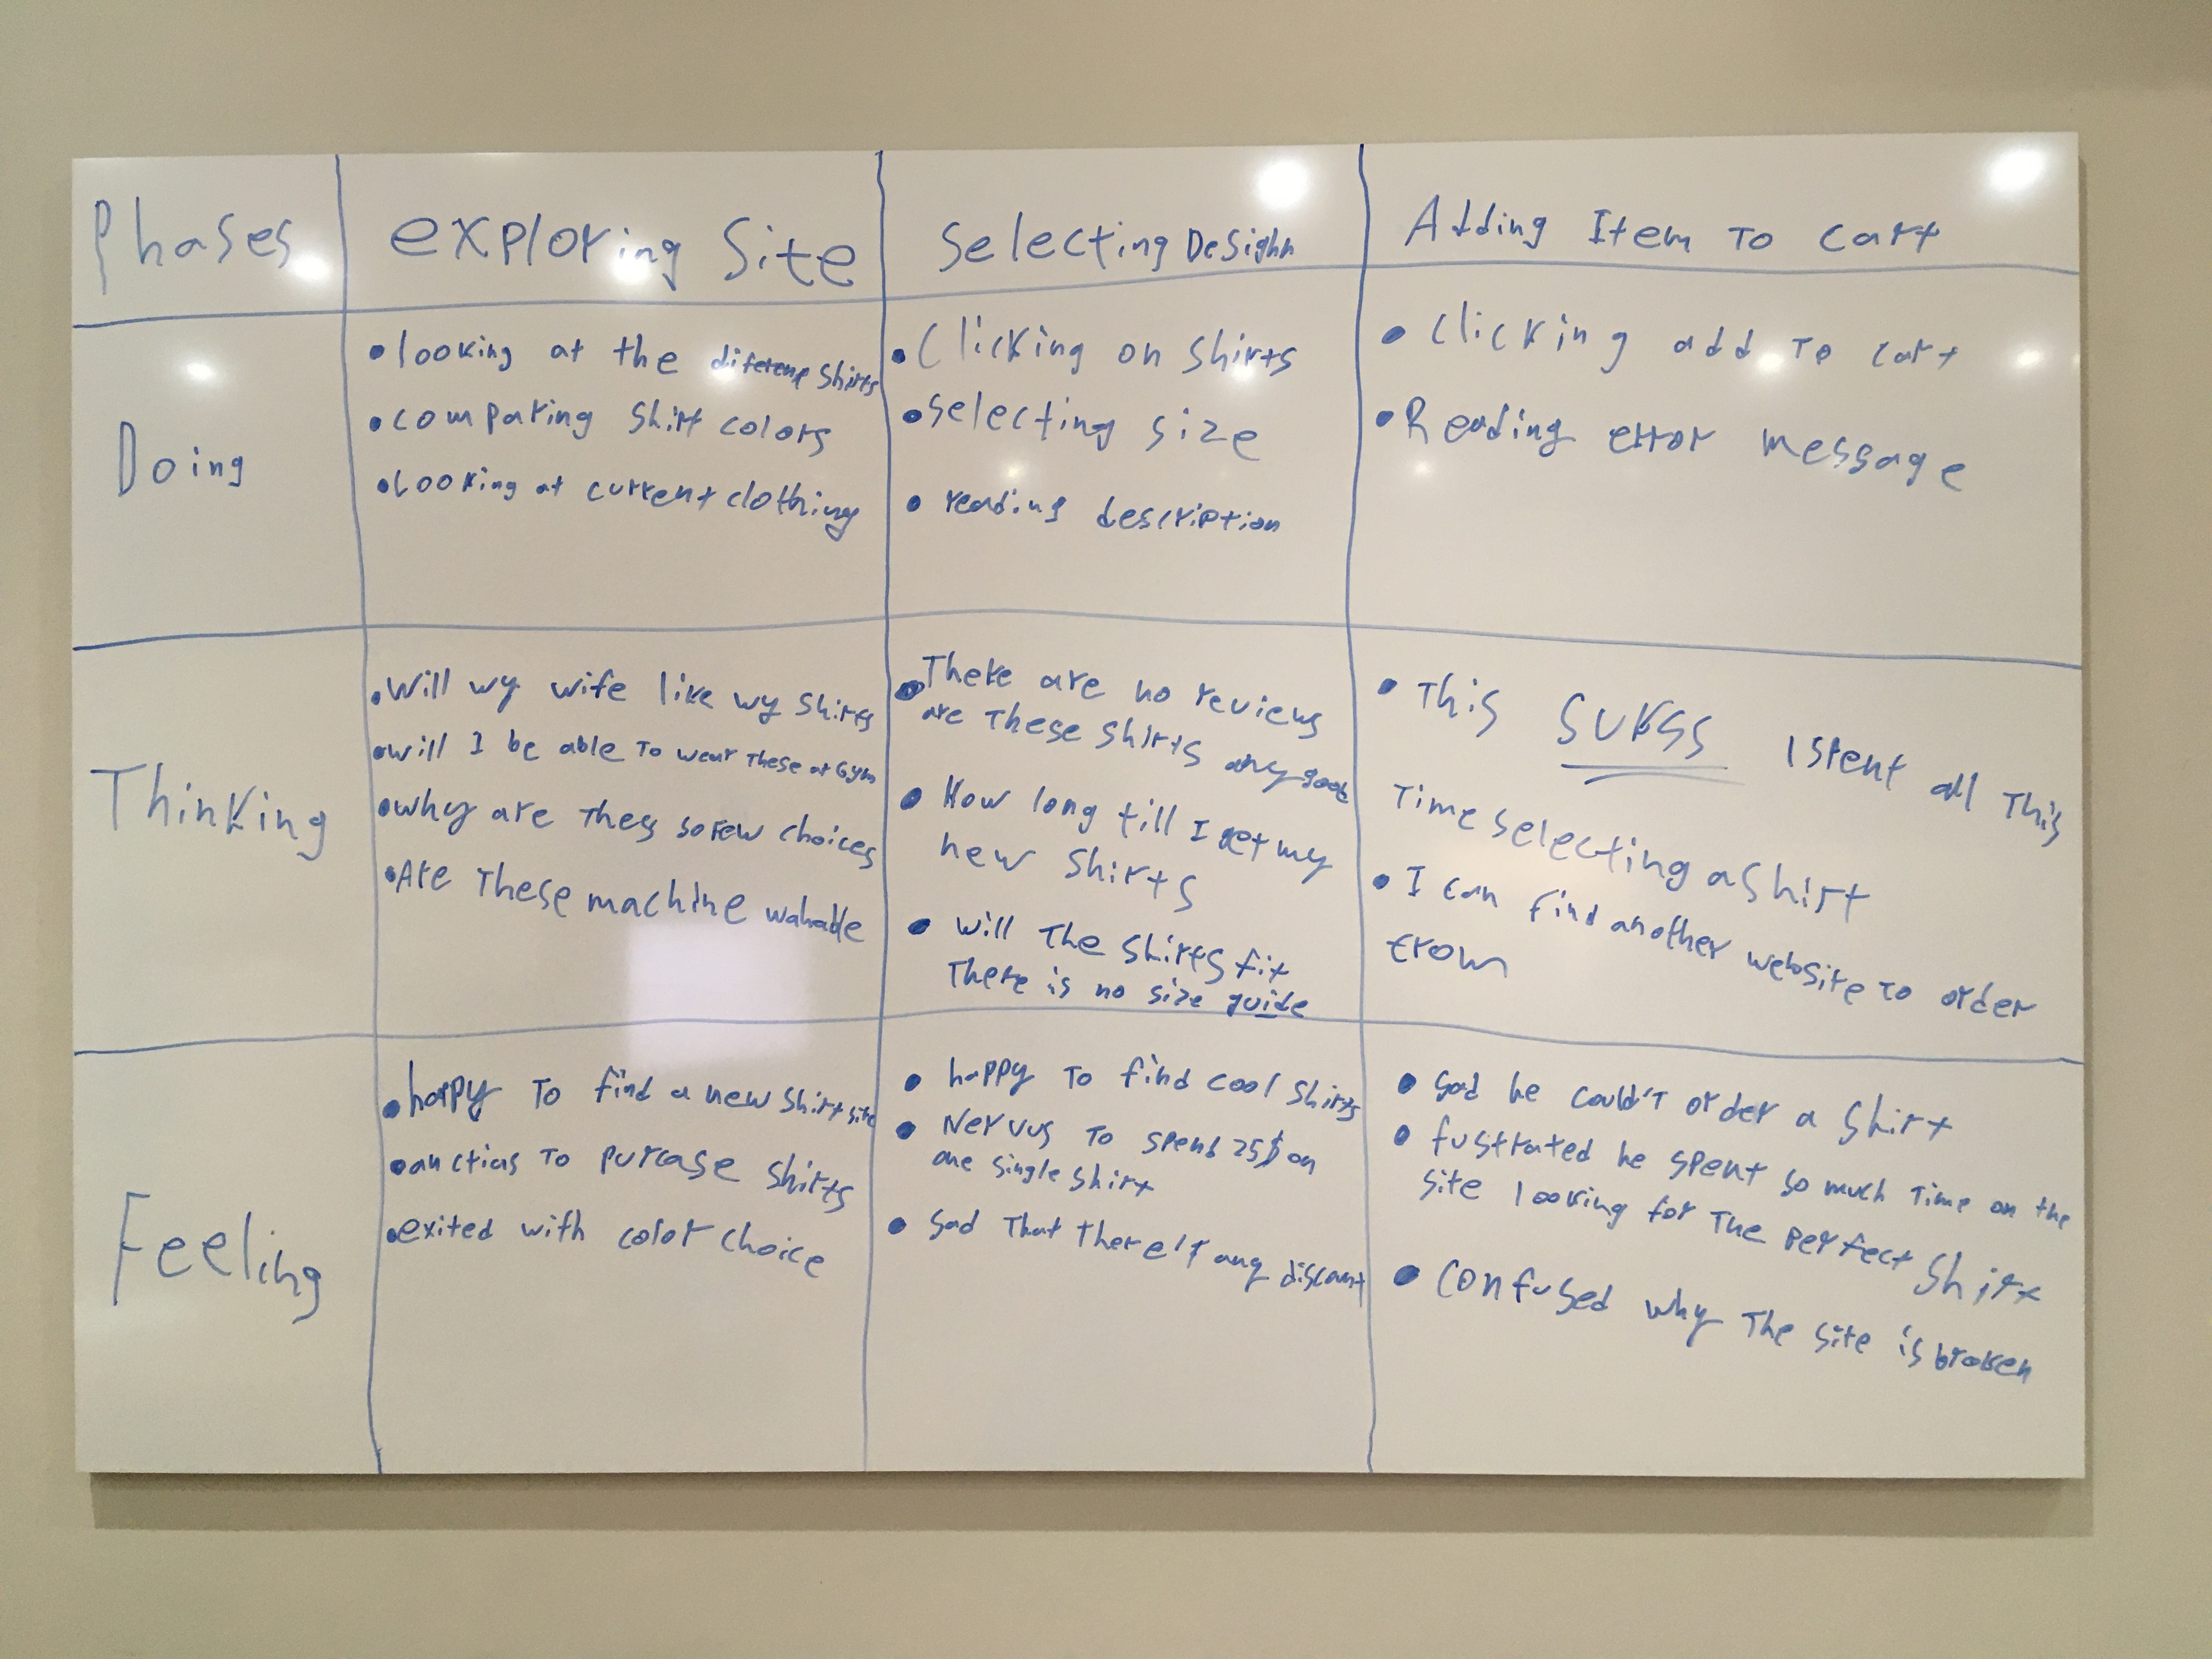 Phases
exploring Site
Selecting Desighn
Adding Item To Cart
Doing
• looking at the diferenp shirts
• comparing shirt colors
• Looking at current clothing
• Clicking on shirts
• selecting size
• reading description
• clicking add to cart
• Reading error message
Thinking
• Will my wife like my shirts
• will I be able to wear these at Gym
• why are they so few choices
• Are These machine wahable
• There are no reviews
are These shirts any good
• How long till I get my
new shirts
• will The shirts fit
There is no size guide
• This SUKSS I spent all This
Time selecting a shirt
• I can find another website to order
from
Feeling
• happy To find a new shirt site
• anctias to purcase shirts
• exited with color choice
• happy To find cool shirts
• Nervus To spend 25$ on
one single shirt
• sad That There's any discant
• sad he could'T order a shirt
• fustrated he spent so much Time on the
site looking for The perfect shirt
• confused why The site is broken